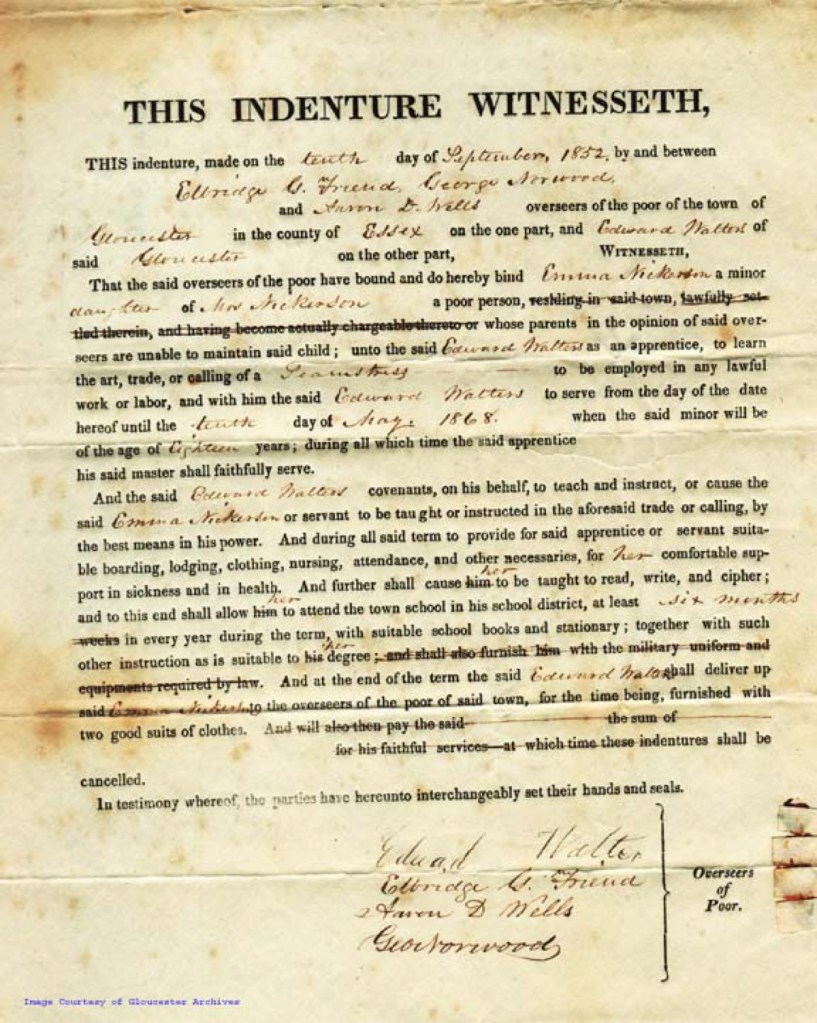 THIS INDENTURE WITNESSETH,
THIS indenture, made on the tenth day of September, 1852, by and between
Elbridge G. Friend, George Norwood,
and Aaron D. Wells overseers of the poor of the town of
Gloucester in the county of Essex on the one part, and Edward Walters of
said Gloucester on the other part, WITNESSETH,
That the said overseers of the poor have bound and do hereby bind Emma Nickerson a minor
daughter of Mrs Nickerson a poor person, residing in said town, lawfully set-
tled therein, and having become actually chargeable thereto or whose parents in the opinion of said over-
seers are unable to maintain said child; unto the said Edward Walters as an apprentice, to learn
the art, trade, or calling of a Seamstress to be employed in any lawful
work or labor, and with him the said Edward Walters to serve from the day of the date
hereof until the tenth day of May. 1868. when the said minor will be
of the age of Eighteen years; during all which time the said apprentice
his said master shall faithfully serve.
And the said Edward Walters covenants, on his behalf, to teach and instruct, or cause the
said Emma Nickerson or servant to be taught or instructed in the aforesaid trade or calling, by
the best means in his power. And during all said term to provide for said apprentice or servant suita-
ble boarding, lodging, clothing, nursing, attendance, and other necessaries, for her comfortable sup-
port in sickness and in health. And further shall cause him her to be taught to read, write, and cipher;
and to this end shall allow him her to attend the town school in his school district, at least six months
weeks in every year during the term, with suitable school books and stationary; together with such
other instruction as is suitable to his her degree; and shall also furnish him with the military uniform and
equipments required by law. And at the end of the term the said Edward Walters shall deliver up
said Emma Nickerson to the overseers of the poor of said town, for the time being, furnished with
two good suits of clothes. And will also then pay the said the sum of
for his faithful services—at which time these indentures shall be
cancelled.
In testimony whereof, the parties have hereunto interchangeably set their hands and seals.
Edward Walter
Elbridge G. Friend
Aaron D Wells
Geo Norwood
Overseers
of
Poor.
Image Courtesy of Gloucester Archives